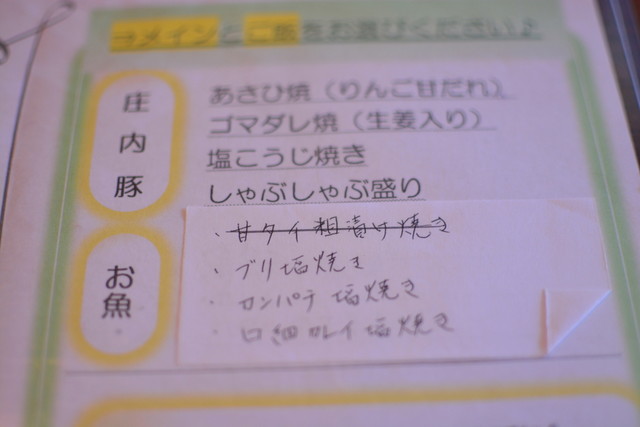 →メインとご飯をお選びください♪
庄内豚
あさひ焼（りんご甘だれ）
ゴマダレ焼（生姜入り）
塩こうじ焼き
しゃぶしゃぶ盛り
お魚
・甘タイ粗漬け焼き
・ブリ塩焼き
・カンパチ塩焼き
・口細カレイ塩焼き